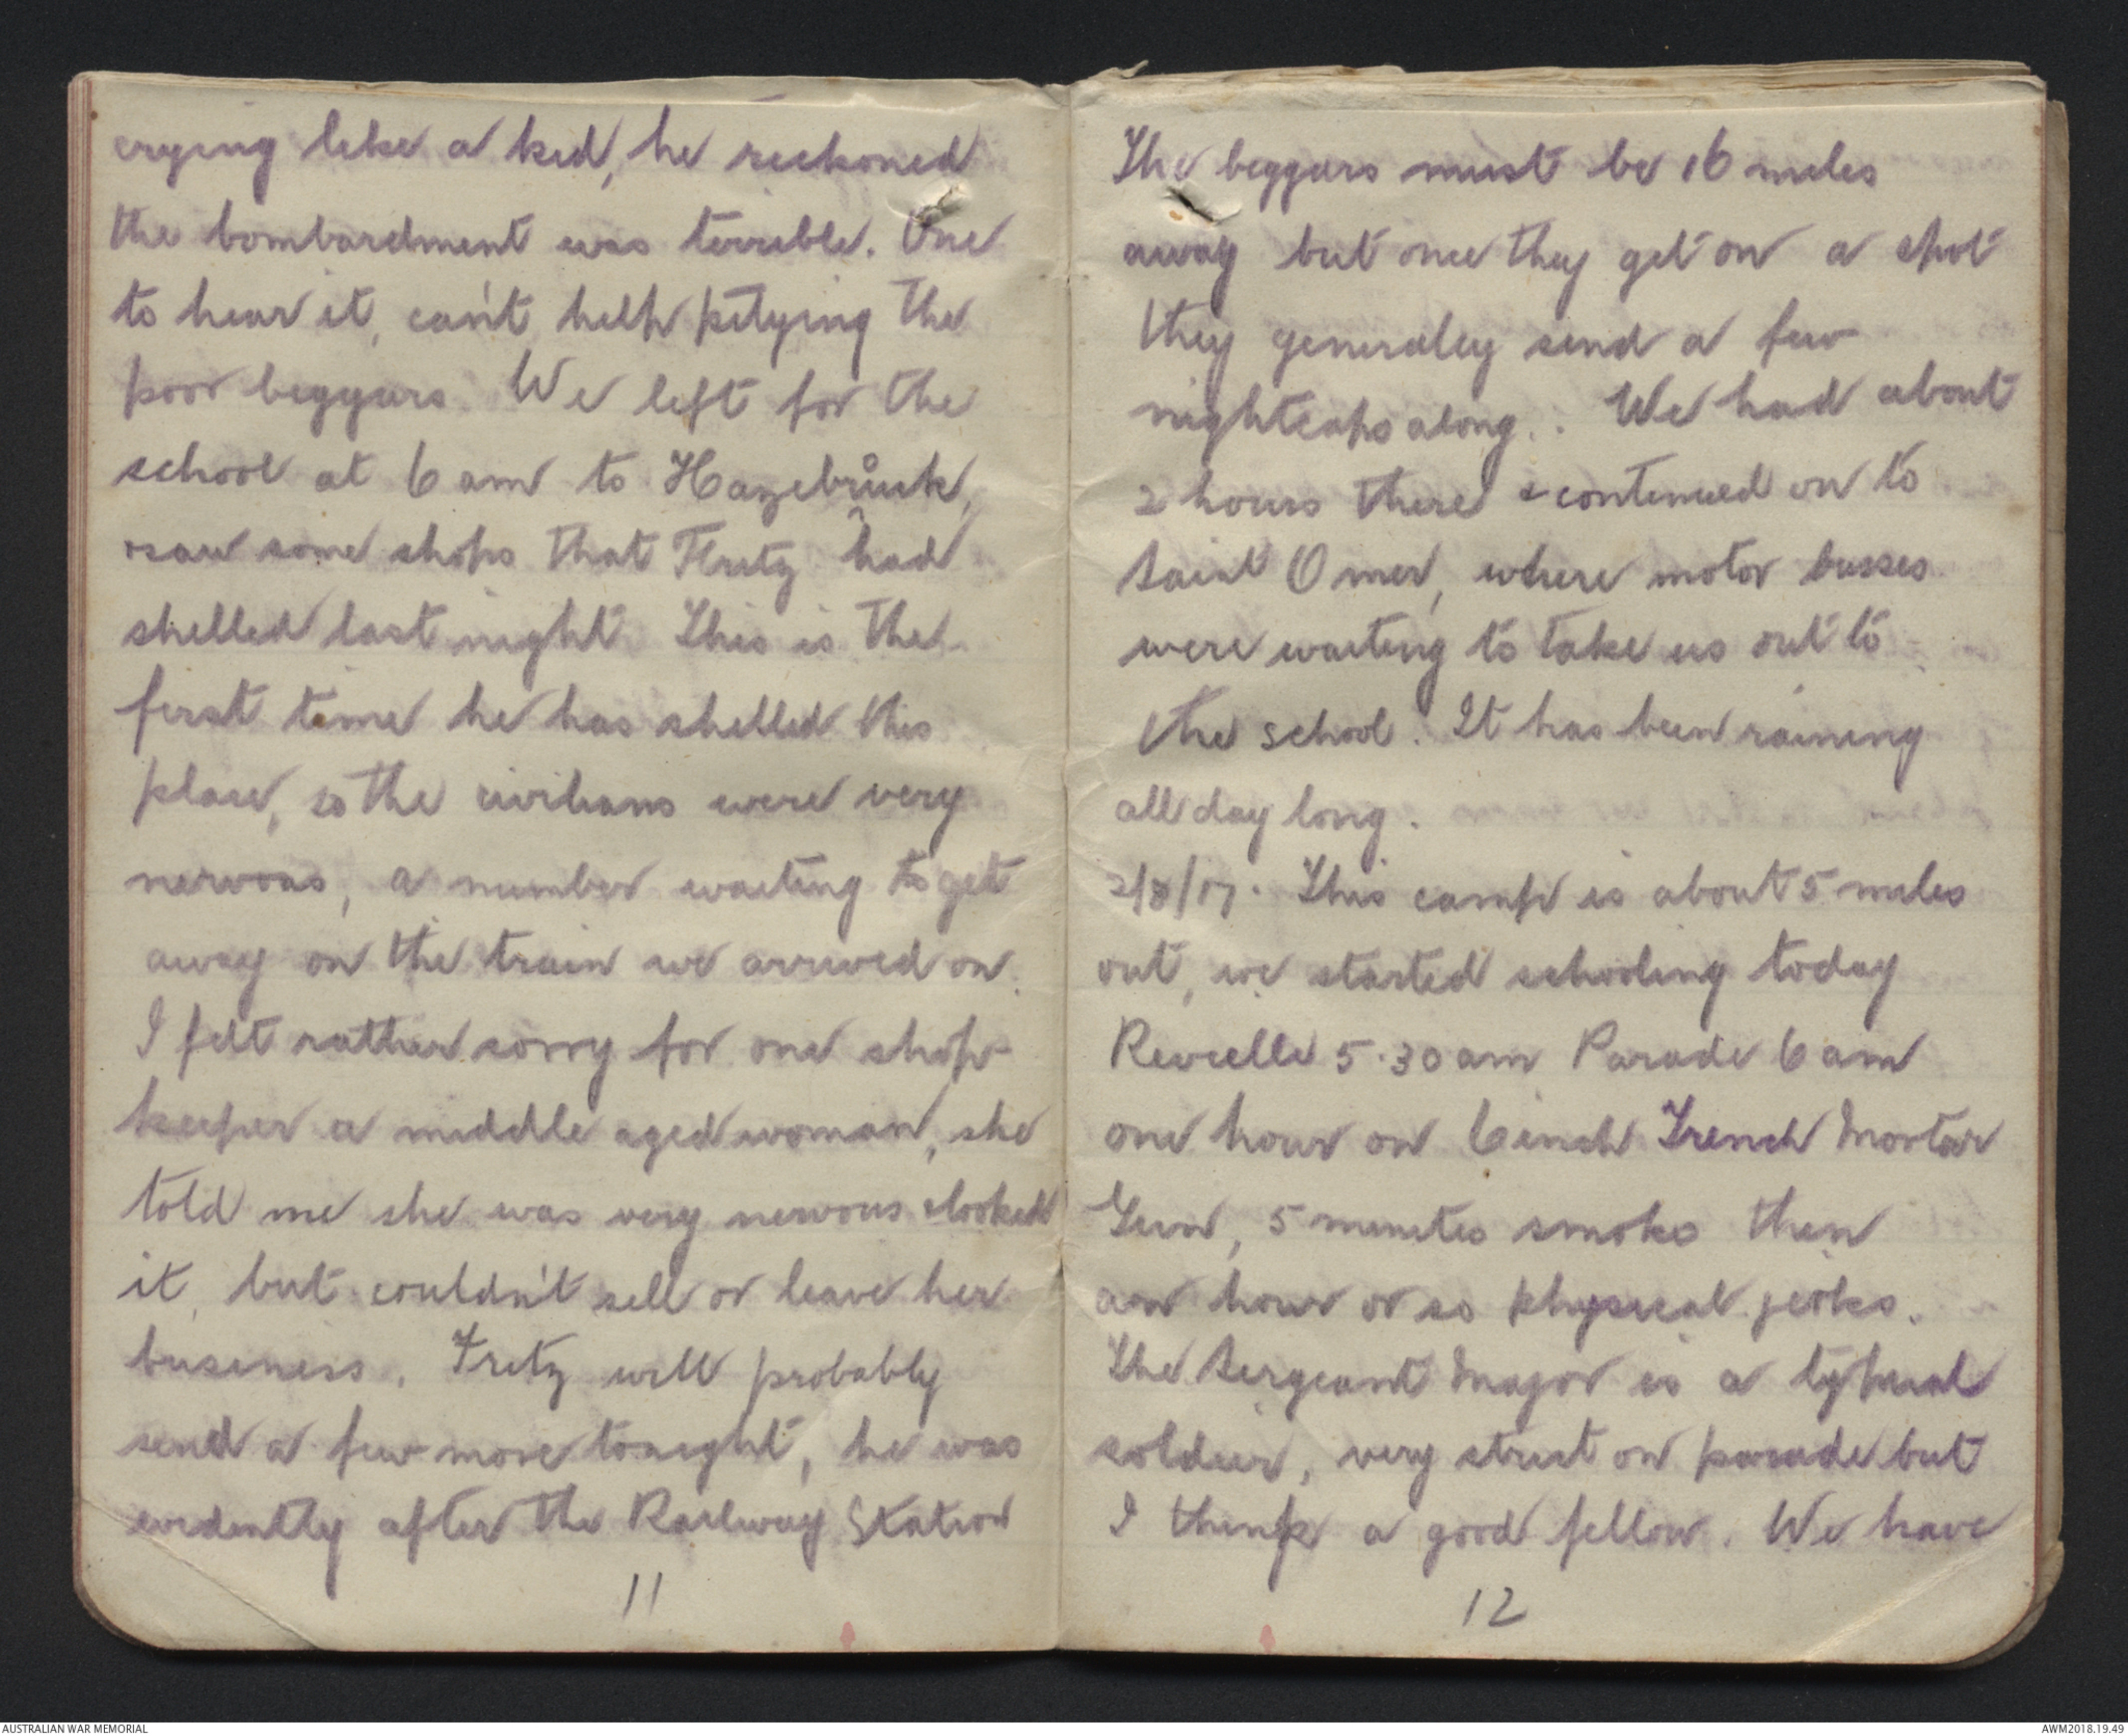 crying like a kid, he reckoned
the bombardment was terrible. One
to hear it, can't help pitying the
poor beggars. We left for the
school at 6 am to Hazebruck,
saw some shops that Fritz had
shelled last night. This is the
first time he has shelled this
place, so the civilians were very
nervous, a number waiting to get
away on the train we arrived on.
I felt rather sorry for one shop-
keeper a middle aged woman, she
told me she was very nervous & looked
it, but couldn't sell or leave her
business. Fritz will probably
send a few more tonight, he was
evidently after the Railway Station
11
The beggars must be 16 miles
away but once they get on a spot
they generally send a few
nightcaps along. We had about
2 hours there & continued on to
Saint Omer, where motor busses
were waiting to take us out to
the school. It has been raining
all day long.
2/8/17. This camp is about 5 miles
out, we started schooling today
Reveille 5.30 am Parade 6 am
one hour on 6 inch Trench Mortar
Gun, 5 minutes smoko then
an hour or so physical jerks.
The Sergeant Major is a typical
soldier, very strict on parade but
I think a good fellow. We have
12
AUSTRALIAN WAR MEMORIAL
AWM2018.19.49